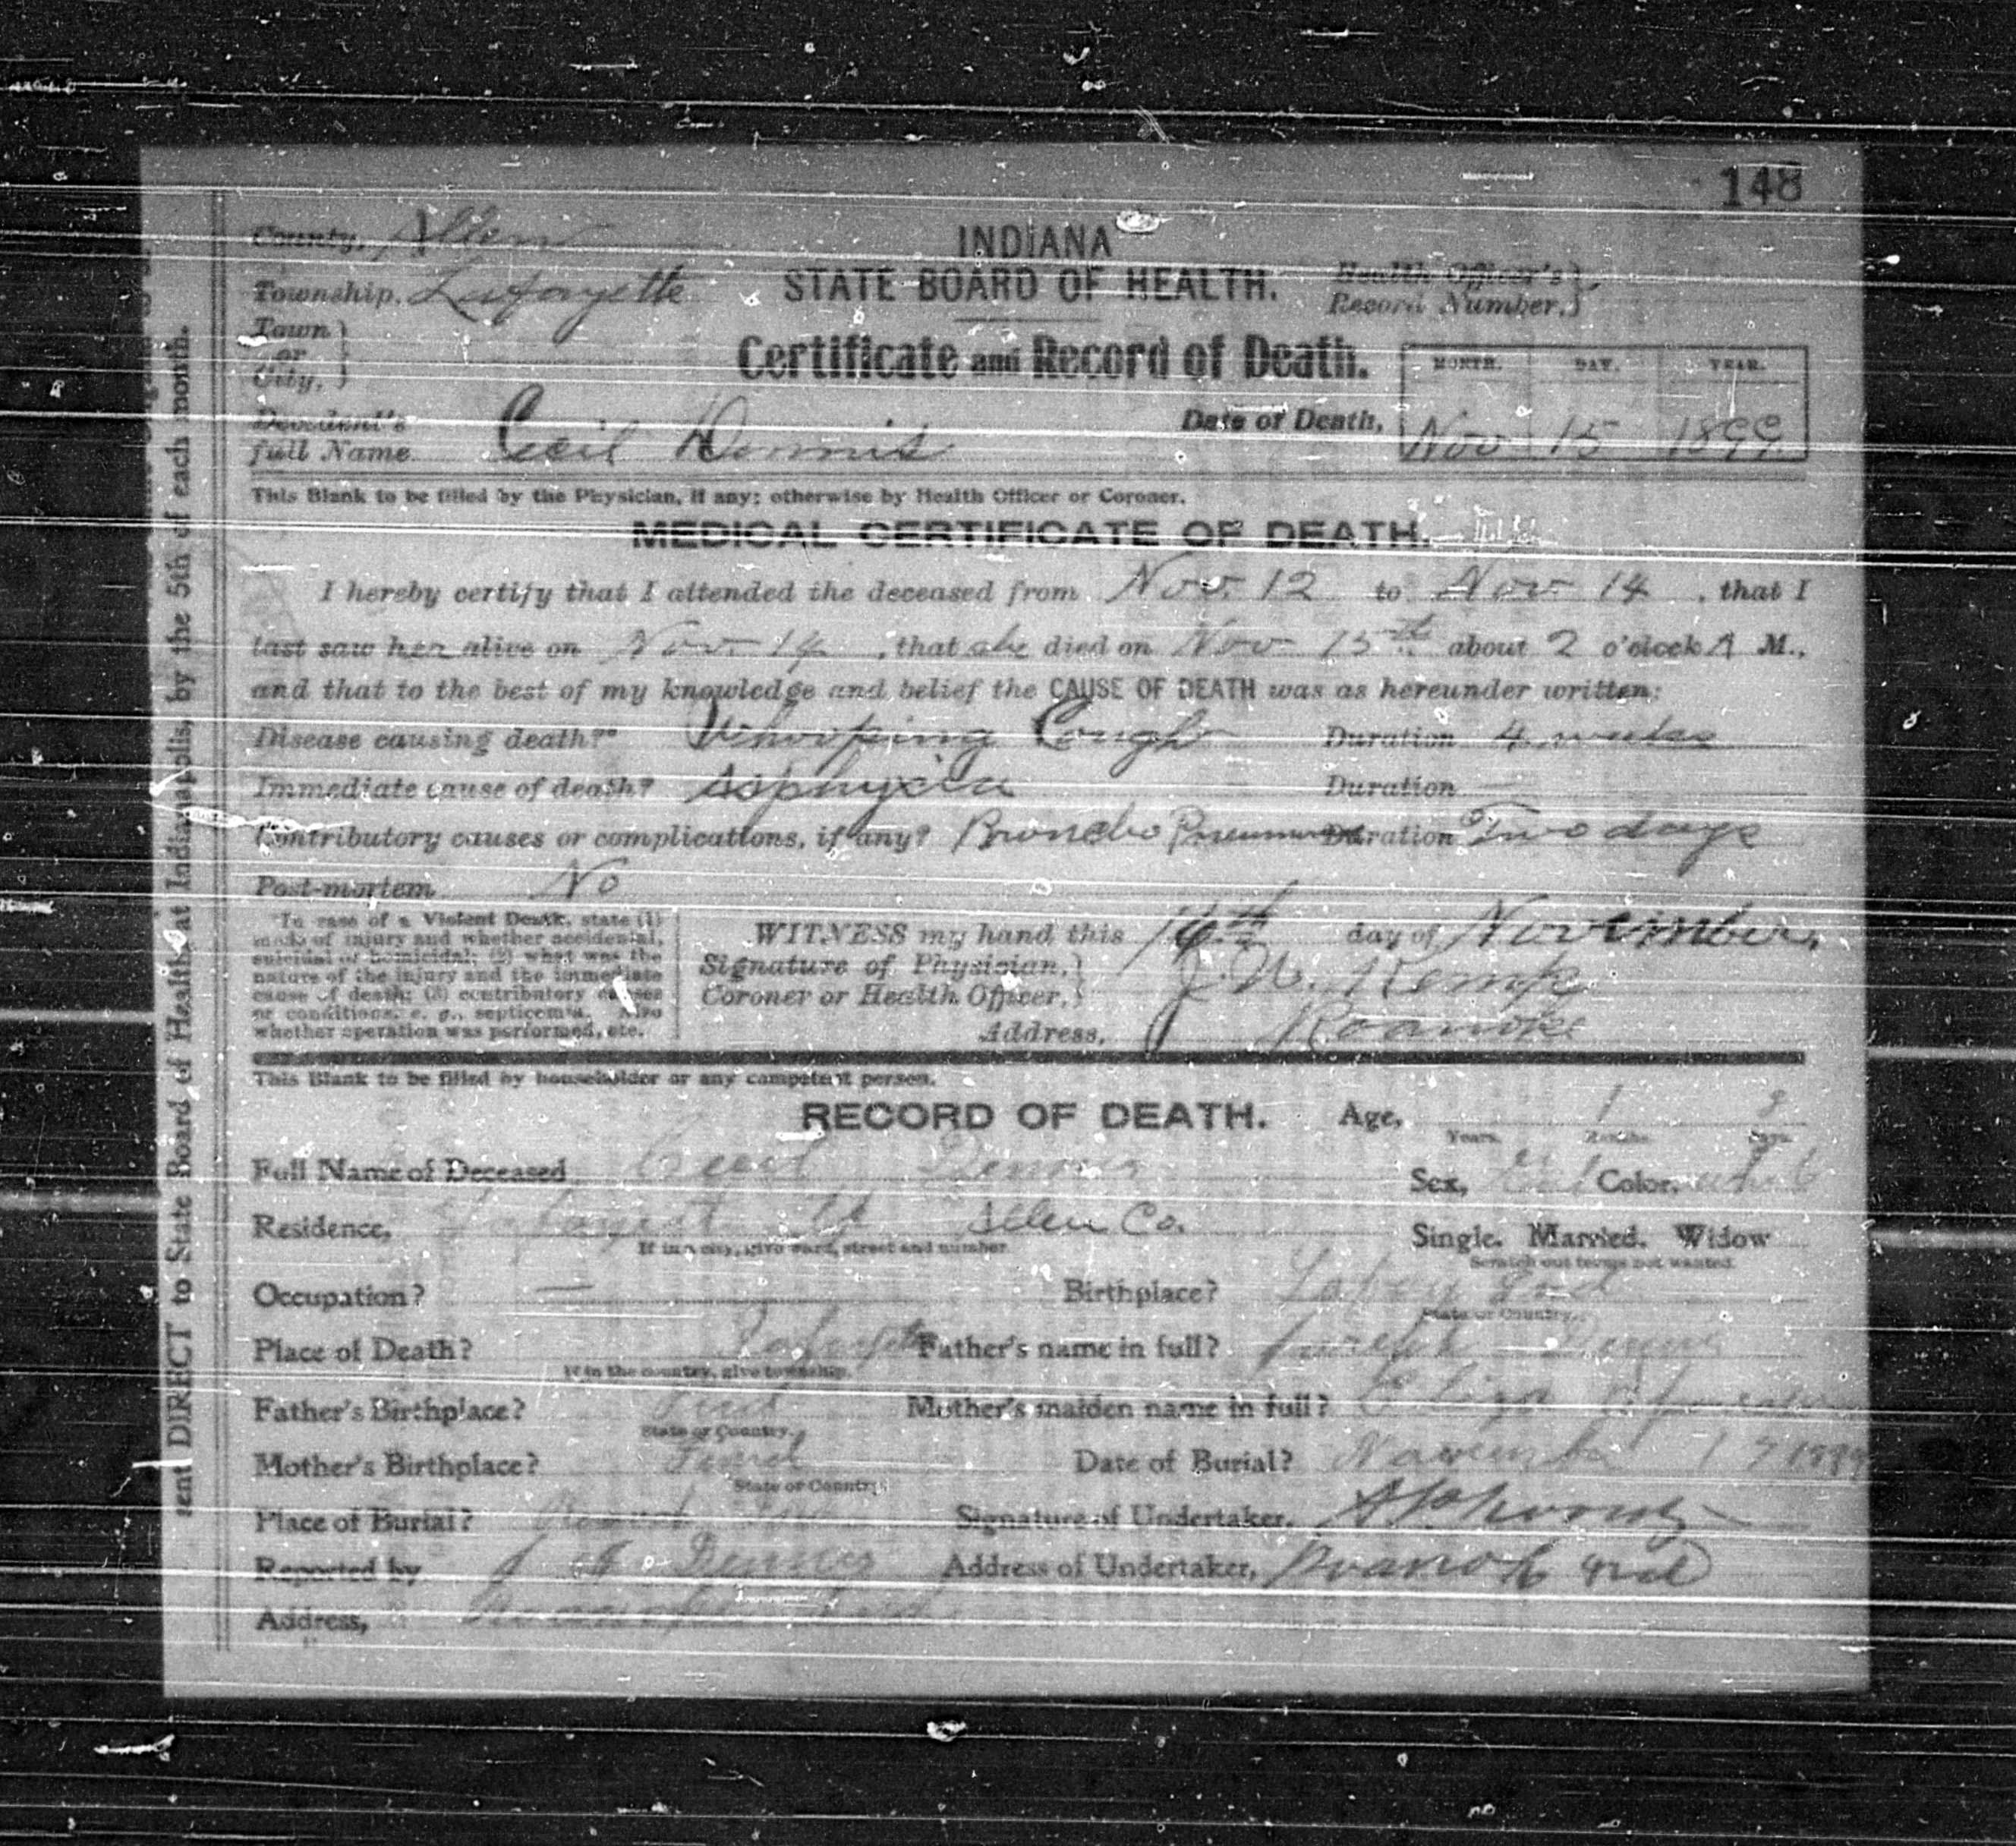 148
County, Allen
INDIANA
Township, Lafayette
STATE BOARD OF HEALTH.
Health Officer's
Record Number.
Town
or
City,
Certificate and Record of Death.
MONTH. DAY. YEAR.
Decedent's
full Name Cecil Dennis
Date of Death, Nov 15 1899
This Blank to be filled by the Physician, if any; otherwise by Health Officer or Coroner.
MEDICAL CERTIFICATE OF DEATH.
I hereby certify that I attended the deceased from Nov. 12 to Nov 14, that I
last saw her alive on Nov 14, that she died on Nov 15th about 2 o'clock A M.,
and that to the best of my knowledge and belief the CAUSE OF DEATH was as hereunder written:
Disease causing death?* Whooping Cough Duration 4 weeks
Immediate cause of death? Asphyxia Duration
Contributory causes or complications, if any? Broncho Pneumonia Duration Two days
Post-mortem No
*In case of a Violent Death, state (1)
mode of injury and whether accidental,
suicidal or homicidal; (2) what was the
nature of the injury and the immediate
cause of death; (3) contributory causes
or conditions, e. g., septicemia. Also
whether operation was performed, etc.
WITNESS my hand this 16th day of November,
Signature of Physician,
Coroner or Health Officer, J. W. Kemp
Address, Roanoke
This Blank to be filled by householder or any competent person.
RECORD OF DEATH. Age, 1 8
Years. Months. Days.
Full Name of Deceased Cecil Dennis Sex, Color,
Residence, Allen Co.
If in a city, give ward, street and number.
Single. Married. Widow
Scratch out terms not wanted.
Occupation? — Birthplace? Ind
State or Country.
Place of Death? Lafayette Father's name in full? Dennis
If in the country, give township.
Father's Birthplace? Ind Mother's maiden name in full? Eliza
State or Country.
Mother's Birthplace? Ind Date of Burial? November 17 1899
State or Country.
Place of Burial? Signature of Undertaker,
Reported by J Dennis Address of Undertaker, Roanoke Ind
Address,
sent DIRECT to State Board of Health, at Indianapolis, by the 5th of each month.